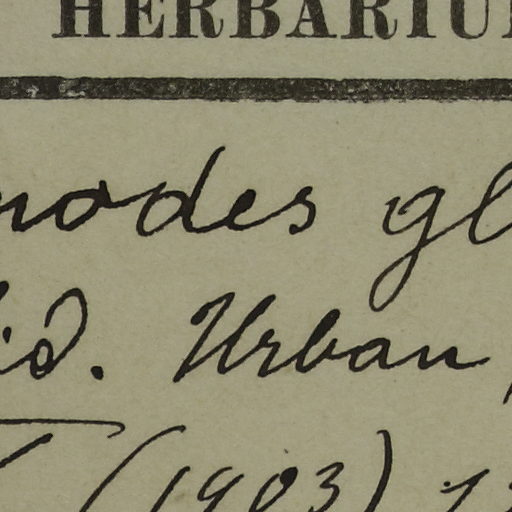 HERBARIU
nodes gl
id. Urban
(1903)